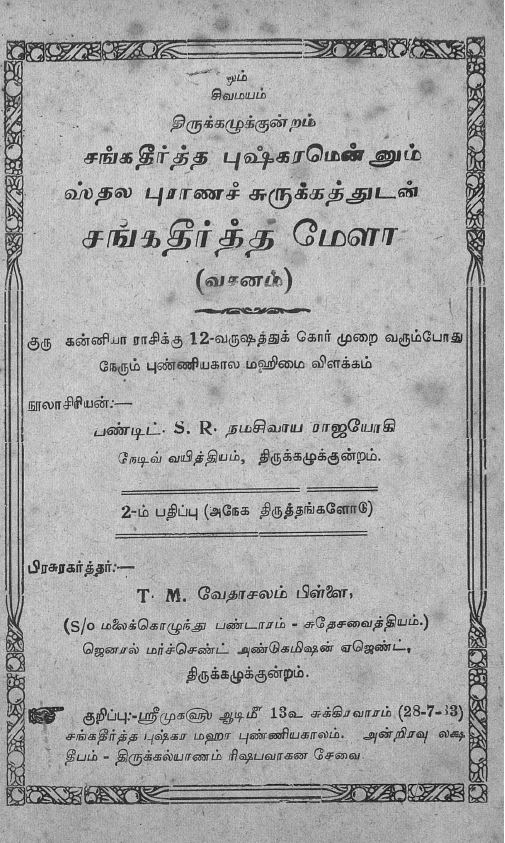 ௐம்
சிவமயம்
திருக்கழுக்குன்றம்
சங்கதீர்த்த புஷ்கரமென்னும்
ஸ்தல புராணச் சுருக்கத்துடன்
சங்கதீர்த்த மேளா
(வசனம்)
குரு கன்னியா ராசிக்கு 12-வருஷத்துக் கோர் முறை வரும்போது
நேரும் புண்ணியகால மஹிமை விளக்கம்
நூலாசிரியன்:—
பண்டிட். S. R. நமசிவாய ராஜயோகி
நேடிவ் வயித்தியம், திருக்கழுக்குன்றம்.
2-ம் பதிப்பு (அநேக திருத்தங்களோடு)
பிரசுரகர்த்தர்:—
T. M. வேதாசலம் பிள்ளை,
(S/o மலைக்கொழுந்து பண்டாரம் - சுதேசவைத்தியம்.)
ஜெனரல் மர்ச்செண்ட் அண்டுகமிஷன் ஏஜெண்ட்,
திருக்கழுக்குன்றம்.
குறிப்பு:-ஸ்ரீமுக௵ ஆடிமீ 13உ சுக்கிரவாரம் (28-7-33)
சங்கதீர்த்த புஷ்கர மஹா புண்ணியகாலம். அன்றிரவு லக்ஷ
தீபம் - திருக்கல்யாணம் ரிஷபவாகன சேவை